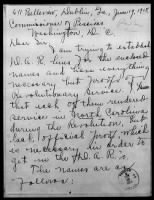 611 Bellevue, Dublin, Ga., June 19, 1915
Commissioner of Pensions
Washington, D. C.
Dear Sir: I am trying to establish
D. A. R. lines for the enclosed
names and have everything
necessary but proofs of
Revolutionary Service
that each of them rendered
service in North Carolina
during the Revolution. But
legal, official proof, which
is necessary in order to
get in the D. A. R.'s.
The names are as
follows: